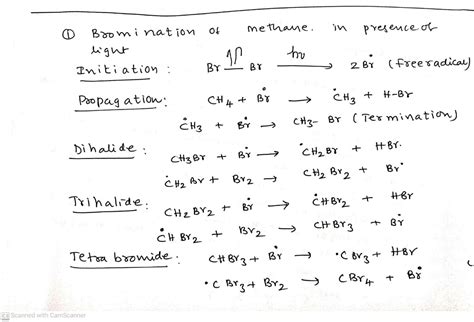 ① Bromination of methane in presence of
light
Initiation : Br — Br hν → 2 Bṙ (free radical)
Propagation: CH4 + Bṙ → ĊH3 + H-Br
ĊH3 + Bṙ → CH3- Br (Termination)
Dihalide : CH3Br + Bṙ → ĊH2Br + HBr.
ĊH2Br + Br2 → CH2Br2 + Br˙
Trihalide: CH2Br2 + Bṙ → ĊHBr2 + HBr
ĊHBr2 + Br2 → CHBr3 + Bṙ
Tetrabromide: CHBr3 + Bṙ → •CBr3 + HBr
•CBr3 + Br2 → CBr4 + Bṙ
CS Scanned with CamScanner